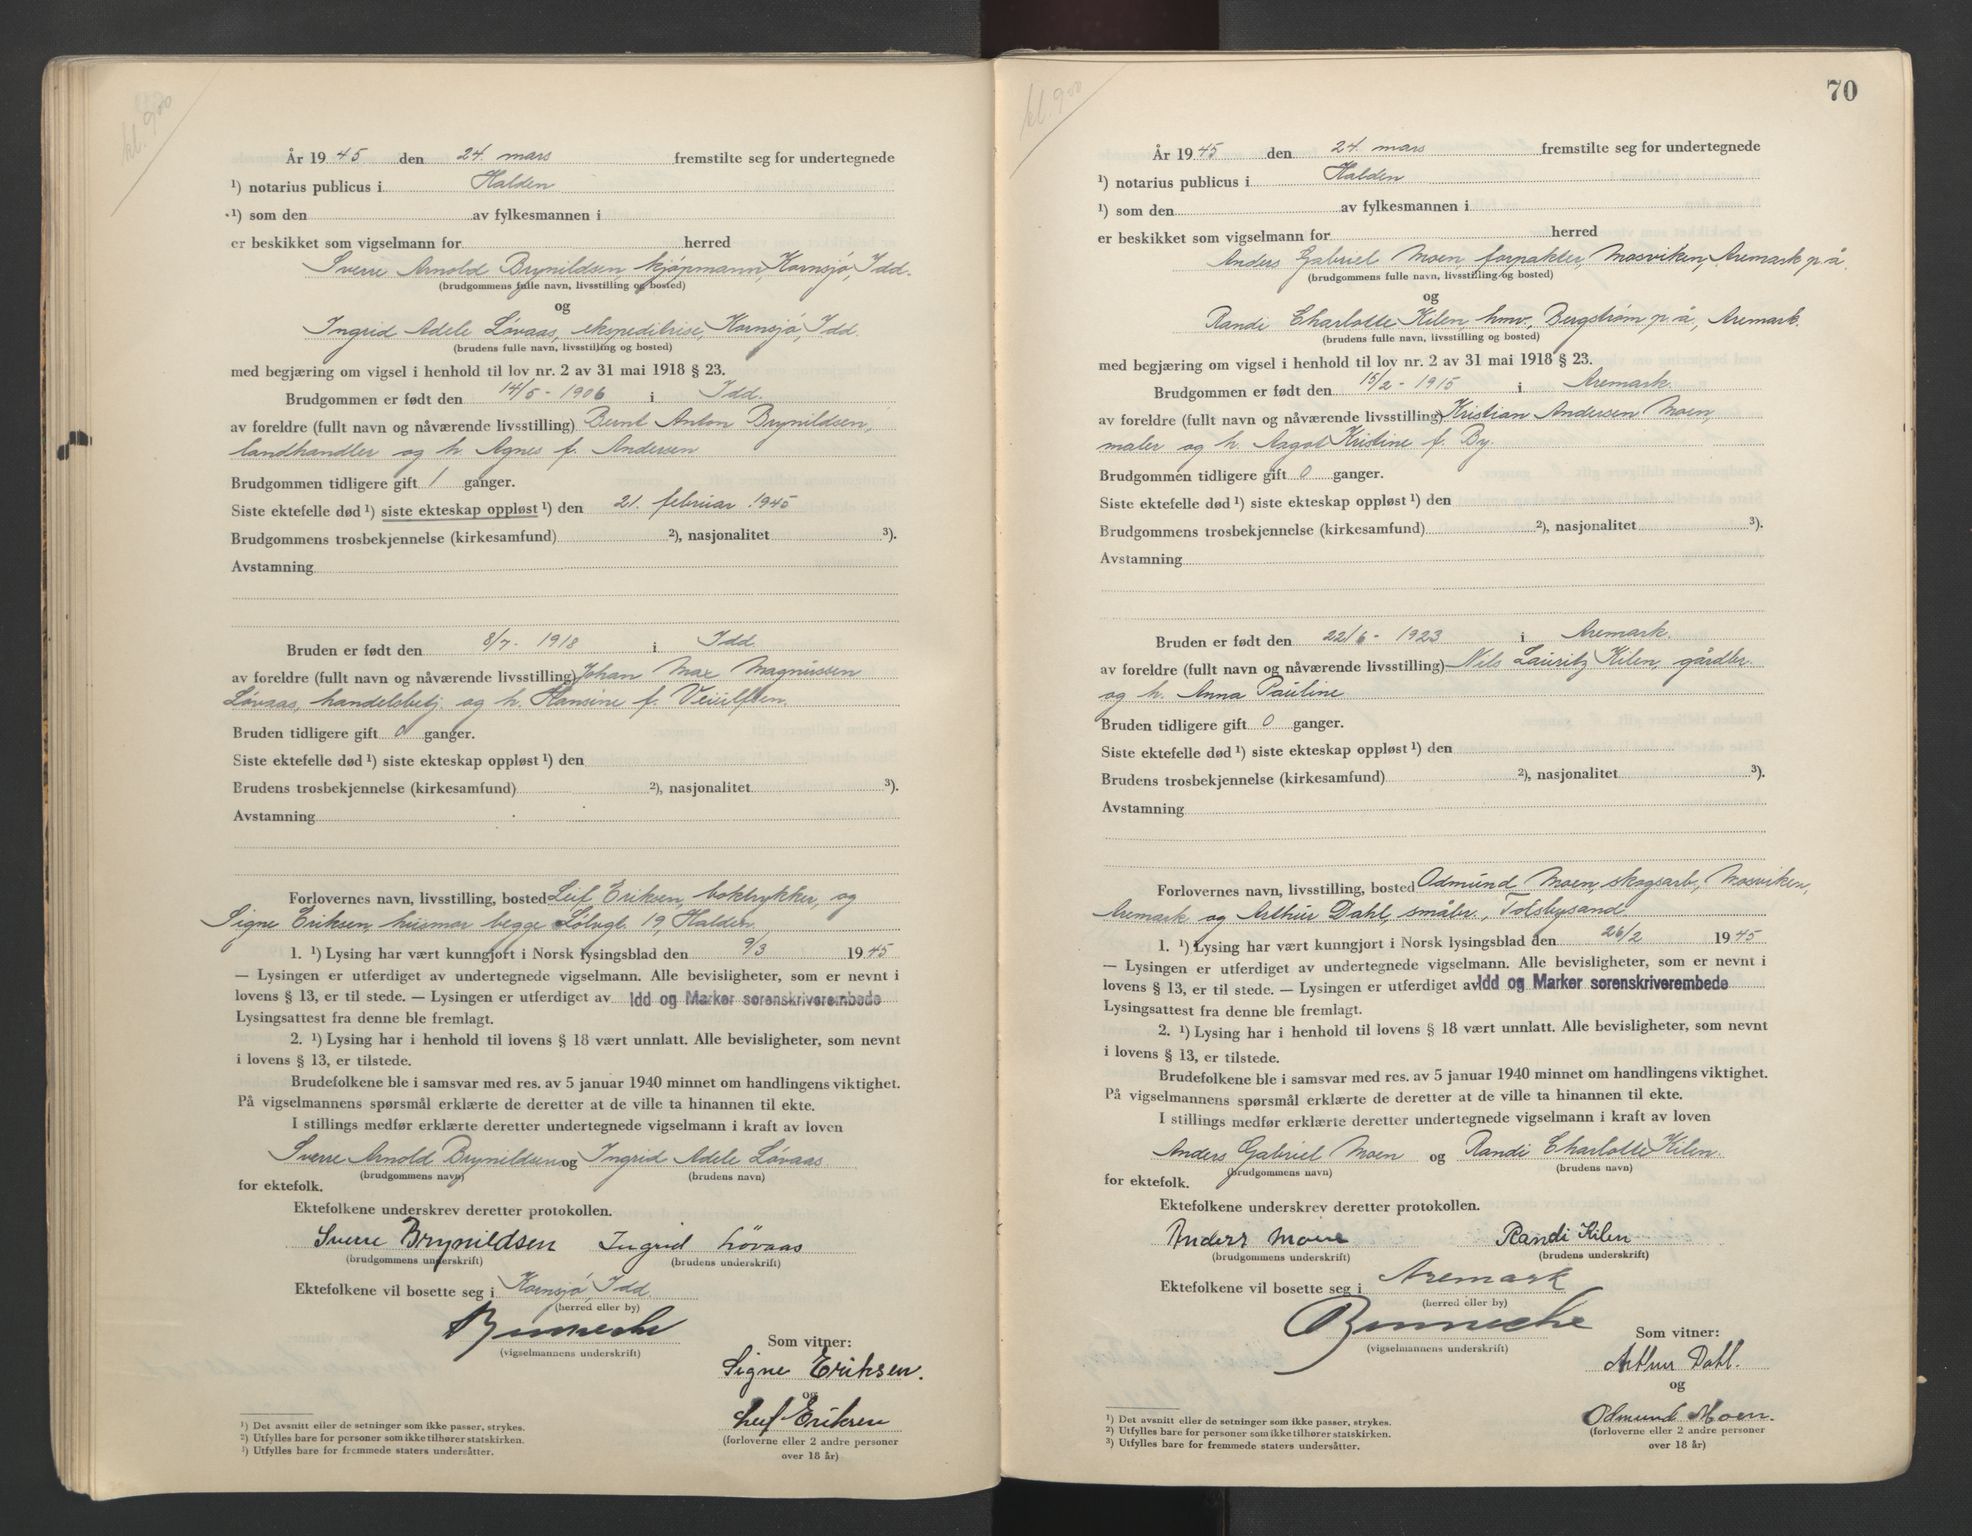 kl. 9⁰⁰
År 1945 den 24. mars fremstilte seg for undertegnede
¹) notarius publicus i Halden
¹) som den av fylkesmannen i
er beskikket som vigselmann for herred
Sverre Arnold Brynildsen, kjøpmann, Kornsjø, Idd.
(brudgommens fulle navn, livsstilling og bosted)
og
Ingrid Adele Løvaas, ekspeditrise, Kornsjø, Idd.
(brudens fulle navn, livsstilling og bosted)
med begjæring om vigsel i henhold til lov nr. 2 av 31 mai 1918 § 23.
Brudgommen er født den 14/5 - 1906 i Idd.
av foreldre (fullt navn og nåværende livsstilling) Bernt Anton Brynildsen,
landhandler og h. Agnes f. Andersen
Brudgommen tidligere gift 1 ganger.
Siste ektefelle død ¹) siste ekteskap oppløst ¹) den 21. februar 1945
Brudgommens trosbekjennelse (kirkesamfund) ²), nasjonalitet ³).
Avstamning
Bruden er født den 8/7 - 1918 i Idd.
av foreldre (fullt navn og nåværende livsstilling) Johan Max Magnussen
Løvaas, handelsbetj. og h. Hansine f.
Bruden tidligere gift 0 ganger.
Siste ektefelle død ¹) siste ekteskap oppløst ¹) den
Brudens trosbekjennelse (kirkesamfund) ²), nasjonalitet ³).
Avstamning
Forlovernes navn, livsstilling, bosted Leif Eriksen, boktrykker, og
Signe Eriksen, husmor begge Sølvgt. 19, Halden.
1. ¹) Lysing har vært kunngjort i Norsk lysingsblad den 9/3 1945
— Lysingen er utferdiget av undertegnede vigselmann. Alle bevisligheter, som er nevnt i
lovens § 13, er til stede. — Lysingen er utferdiget av Idd og Marker sorenskriverembede
Lysingsattest fra denne ble fremlagt.
2. ¹) Lysing har i henhold til lovens § 18 vært unnlatt. Alle bevisligheter, som nevnt
i lovens § 13, er tilstede.
Brudefolkene ble i samsvar med res. av 5 januar 1940 minnet om handlingens viktighet.
På vigselmannens spørsmål erklærte de deretter at de ville ta hinannen til ekte.
I stillings medfør erklærte deretter undertegnede vigselmann i kraft av loven
Sverre Arnold Brynildsen og Ingrid Adele Løvaas
(brudgommens navn) (brudens navn)
for ektefolk.
Ektefolkene underskrev deretter protokollen.
Sverre Brynildsen Ingrid Løvaas
(brudgommens underskrift) (brudens underskrift)
Ektefolkene vil bosette seg i Kornsjø, Idd.
(herred eller by)
(vigselmannens underskrift)
Som vitner:
Signe Eriksen.
og
Leif Eriksen
(forloverne eller 2 andre personer
over 18 år)
¹) Det avsnitt eller de setninger som ikke passer, strykes.
²) Utfylles bare for personer som ikke tilhører statskirken.
³) Utfylles bare for fremmede staters undersåtter.
70
kl. 9⁰⁰
År 1945 den 24. mars fremstilte seg for undertegnede
¹) notarius publicus i Halden
¹) som den av fylkesmannen i
er beskikket som vigselmann for herred
Anders Gabriel Moen, forpakter, Mosviken, Aremark p.å.
(brudgommens fulle navn, livsstilling og bosted)
og
Randi Charlotte Kilen, hmv., Bergstrøm p.å., Aremark.
(brudens fulle navn, livsstilling og bosted)
med begjæring om vigsel i henhold til lov nr. 2 av 31 mai 1918 § 23.
Brudgommen er født den 15/2 - 1915 i Aremark.
av foreldre (fullt navn og nåværende livsstilling) Kristian Andersen Moen,
maler og h. Aagot Kristine f. By.
Brudgommen tidligere gift 0 ganger.
Siste ektefelle død ¹) siste ekteskap oppløst ¹) den
Brudgommens trosbekjennelse (kirkesamfund) ²), nasjonalitet ³).
Avstamning
Bruden er født den 22/6 - 1923 i Aremark.
av foreldre (fullt navn og nåværende livsstilling) Nils Lauritz Kilen, gårdbr.
og h. Anna Pauline
Bruden tidligere gift 0 ganger.
Siste ektefelle død ¹) siste ekteskap oppløst ¹) den
Brudens trosbekjennelse (kirkesamfund) ²), nasjonalitet ³).
Avstamning
Forlovernes navn, livsstilling, bosted Odmund Moen, skogsarb., Mosviken,
Aremark og Arthur Dahl, småbr., Tolsbysand.
1. ¹) Lysing har vært kunngjort i Norsk lysingsblad den 26/2 1945
— Lysingen er utferdiget av undertegnede vigselmann. Alle bevisligheter, som er nevnt i
lovens § 13, er til stede. — Lysingen er utferdiget av Idd og Marker sorenskriverembede
Lysingsattest fra denne ble fremlagt.
2. ¹) Lysing har i henhold til lovens § 18 vært unnlatt. Alle bevisligheter, som nevnt
i lovens § 13, er tilstede.
Brudefolkene ble i samsvar med res. av 5 januar 1940 minnet om handlingens viktighet.
På vigselmannens spørsmål erklærte de deretter at de ville ta hinannen til ekte.
I stillings medfør erklærte deretter undertegnede vigselmann i kraft av loven
Anders Gabriel Moen og Randi Charlotte Kilen
(brudgommens navn) (brudens navn)
for ektefolk.
Ektefolkene underskrev deretter protokollen.
Anders Moen Randi Kilen
(brudgommens underskrift) (brudens underskrift)
Ektefolkene vil bosette seg i Aremark
(herred eller by)
(vigselmannens underskrift)
Som vitner:
Arthur Dahl.
og
Odmund Moen.
(forloverne eller 2 andre personer
over 18 år)
¹) Det avsnitt eller de setninger som ikke passer, strykes.
²) Utfylles bare for personer som ikke tilhører statskirken.
³) Utfylles bare for fremmede staters undersåtter.